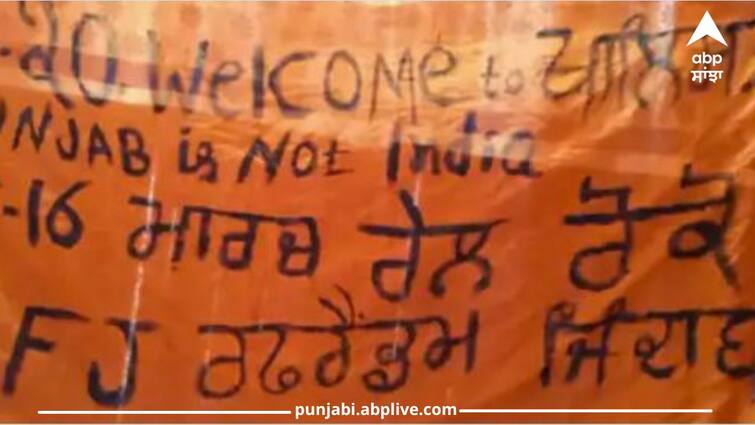 -20 Welcome to
PUNJAB is Not India
-16 ਮਾਰਚ ਰੇਲ ਰੋਕੋ
FJ ਰਫਰੈਂਡਮ
abp
ਸਾਂਝਾ
punjabi.abplive.com